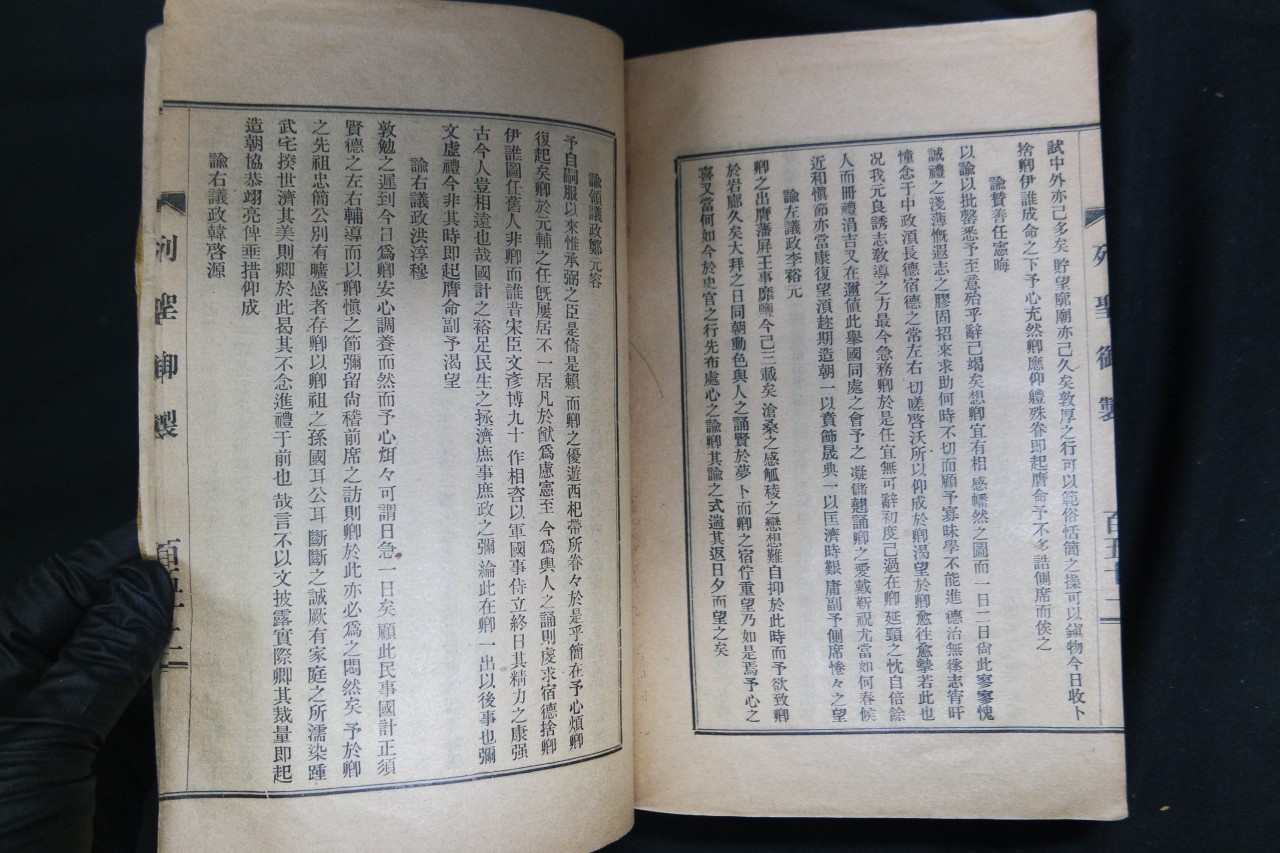 列聖御製
百五十一
試中外亦已多矣貯望廊廟亦已久矣敦厚之行可以範俗恬簡之操可以鎭物今日收卜
捨卿伊誰成命之下予心充然卿應仰體殊眷即起膺命予不多誥側席而俟之
諭贊善任憲晦
以諭以批罄悉予至意殆乎辭已竭矣想卿宜有相感幡然之圖而一日二日尙此寥寥愧
誠禮之淺薄慨遐志之膠固招來求助何時不切而顧予寡昧學不能進德治無遂志宵旰
憧念于中政湏長德宿德之常左右切嗟啓沃所以仰成於卿渴望於卿愈往愈摯若此也
况我元良誘志敎導之方最今急務卿於是任宜無可辭初度已過在卿延頸之忱自倍餘
人而冊禮涓吉又在邇値此擧國同慶之會予之凝儲翹誦卿之愛戴靳祝尤當如何春候
近和愼節亦當康復望湏趂期造朝一以賁飾晟典一以匡濟時艱庸副予側席惓々之望
諭左議政李裕元
卿之出膺藩屛王事靡盬今已三載矣滄桑之感觚稜之戀想難自抑於此時而予欲致卿
於岩廊久矣大拜之日同朝動色與人之誦賢於夢卜而卿之宿佇重望乃如是焉予心之
喜又當何如今於史官之行先布處心之諭卿其諭之式遄其返日夕而望之矣
諭領議政鄭元容
予自嗣服以來惟承弼之臣是倚是賴而卿之優遊西杞帶所眷々於是乎簡在予心煩卿
復起矣卿於元輔之任旣屢居不一居凡於猷爲慮憲至今爲輿人之誦則虔求宿德捨卿
伊誰圖任舊人非卿而誰昔宋臣文彥博九十作相咨以軍國事侍立終日其精力之康强
古今人豈相遠也哉國計之裕足民生之拯濟庶事庶政之彌淪此在卿一出以後事也彌
文虛禮今非其時即起膺命副予渴望
諭右議政洪淳穆
敦勉之遲到今日爲卿安心調養而然而予心炯々可謂日急一日矣顧此民事國計正須
賢德之左右輔導而以卿愼之節彌留尙稽前席之訪則卿於此亦必爲之悶然矣予於卿
之先祖忠簡公別有曠感者存卿以卿祖之孫國耳公耳斷斷之誠厥有家庭之所濡染踵
武宅揆世濟其美則卿於此曷其不念進禮于前也哉言不以文披露實際卿其裁量即起
造朝協恭翊亮俾垂措仰成
諭右議政韓啓源
列聖御製